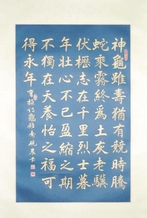 神龜雖壽猶有競時騰
蛇乘霧終為土灰老驥
伏櫪志在千里烈士暮
年壯心不已盈縮之期
不獨在天養怡之福可
得永年
龜雖壽